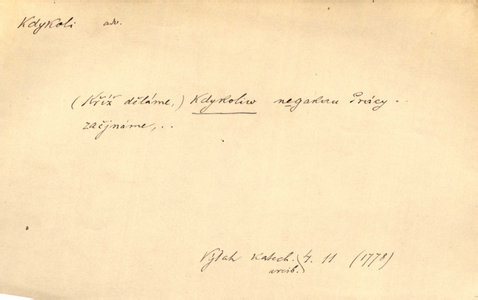 Kdykoli adv.
(Kříž děláme,) Kdykoliw negakau Prácy..
začjnáme,..
Výtah katech. 4. 11 (1778)